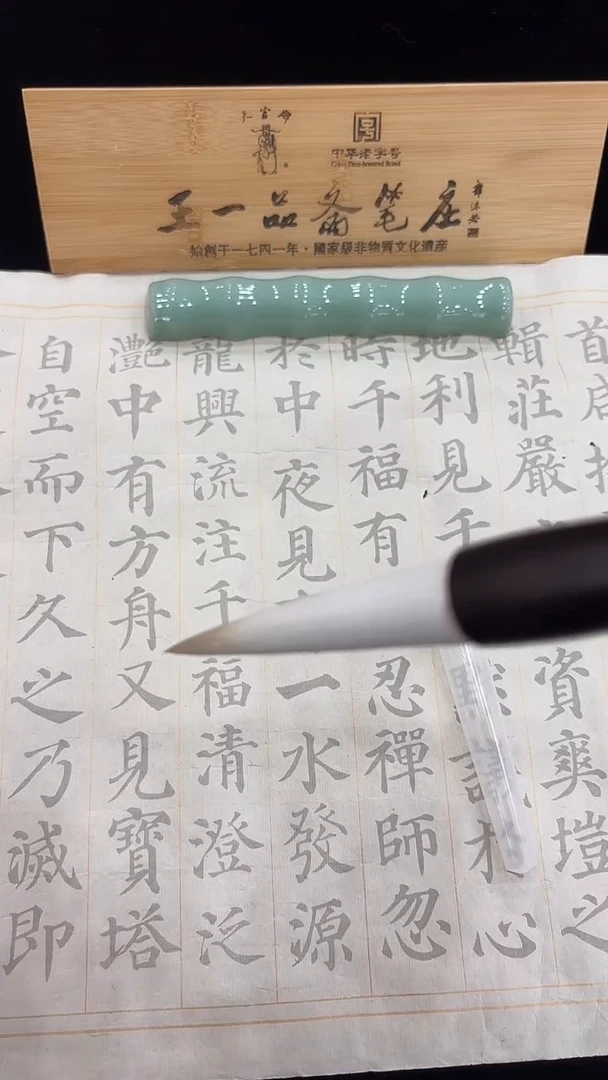 中华老字号
China Time-honored Brand
王一品斋笔庄
始創于一七四一年·國家級非物質文化遺産
首
輯莊嚴資爽塏之
地利見千心
時千福有忍禪師忽
於中夜見一水發源
龍興流注千福清澄泛
灩中有方舟又見寶塔
自空而下久之乃滅即